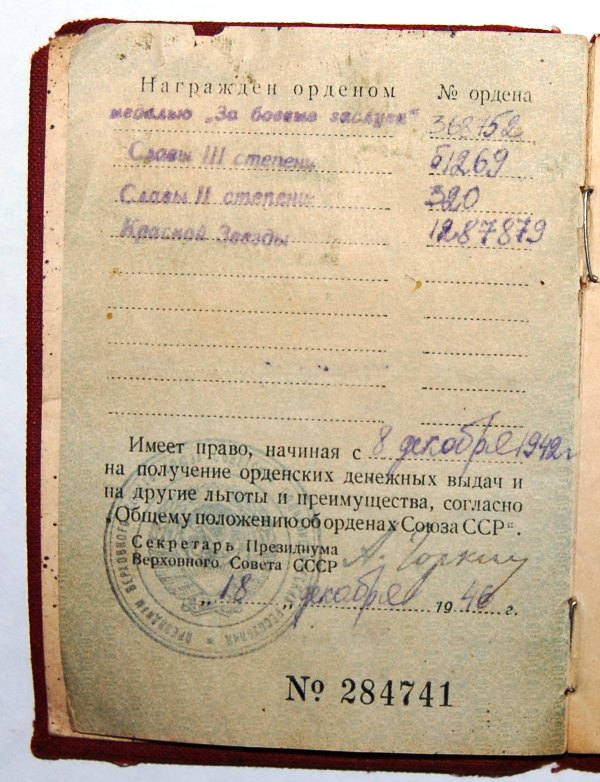 Награжден орденом № ордена
медалью „За боевые заслуги“ 368752
Славы III степени 61269
Славы II степени 320
Красной Звезды 1287879
Имеет право, начиная с 8 декабря 1942 г
на получение орденских денежных выдач и
на другие льготы и преимущества, согласно
„Общему положению об орденах Союза ССР“.
Секретарь Президиума
Верховного Совета СССР А. Горкин
„ 18 „ декабря 1946 г.
№ 284741